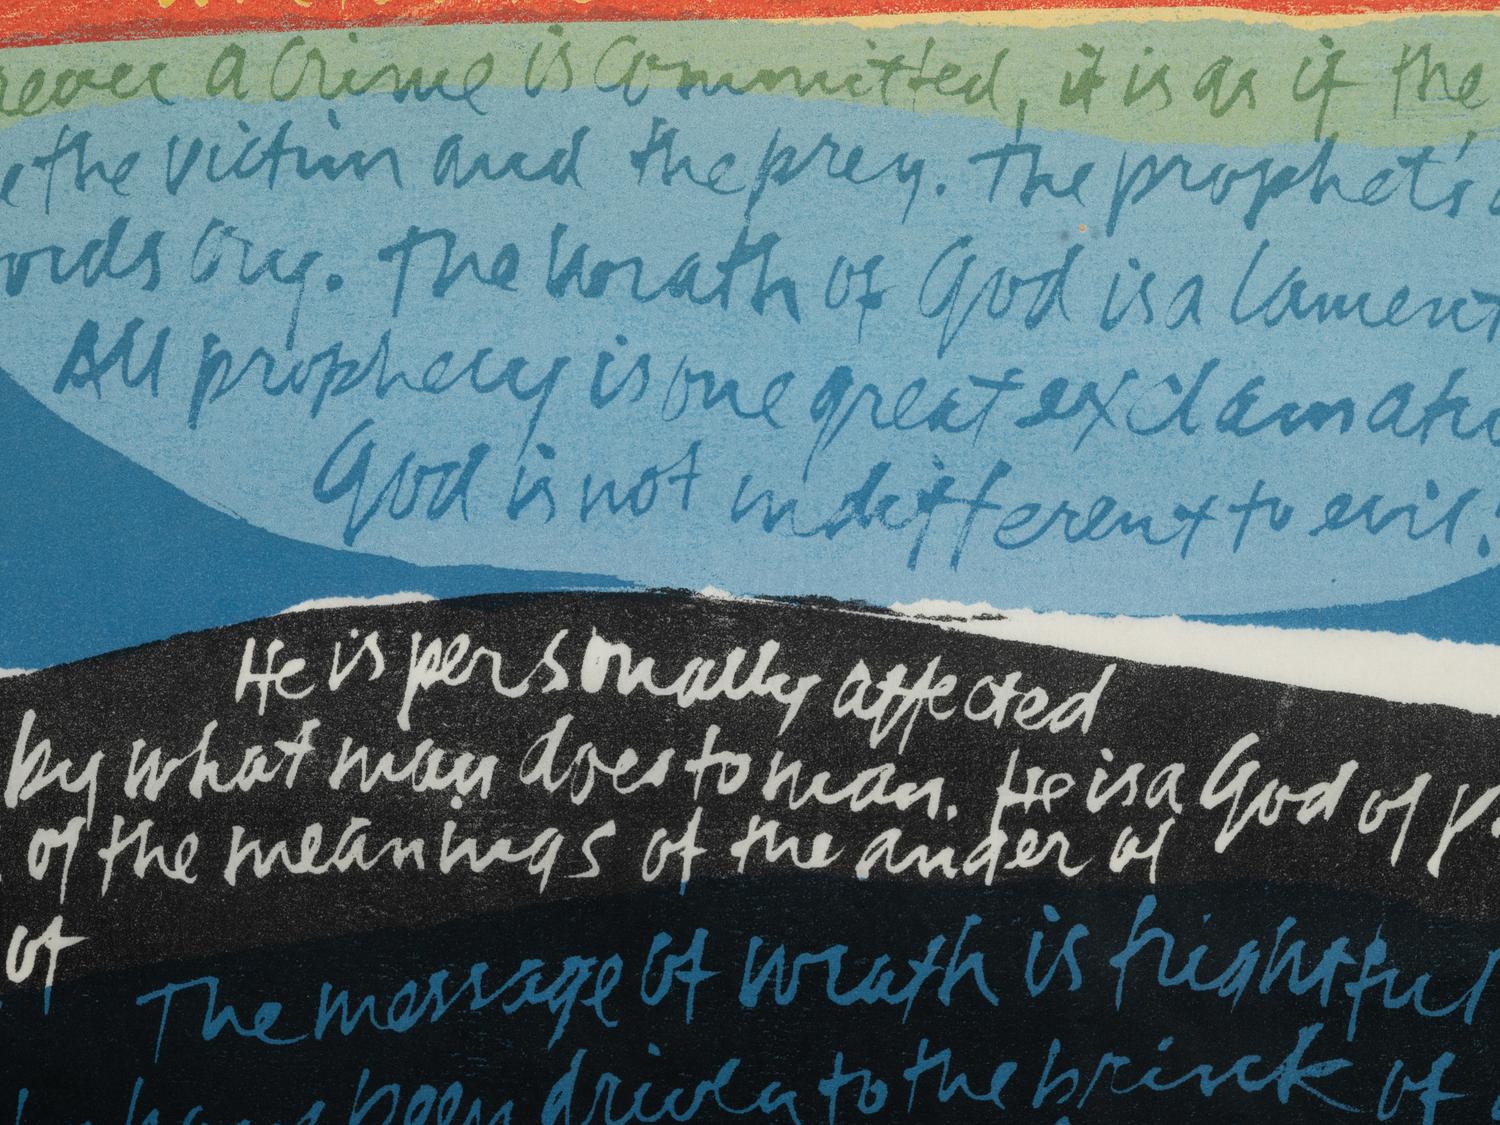 a crime is committed, it is as if the
the victim and the prey. The prophet's
ords cry. The wrath of God is a lament
All prophecy is one great exclamatio
God is not indifferent to evil!
He is personally affected
by what man does to man. He is a God of p
of the meanings of the anger of
of
The message of wrath is frightful
have been driven to the brink of